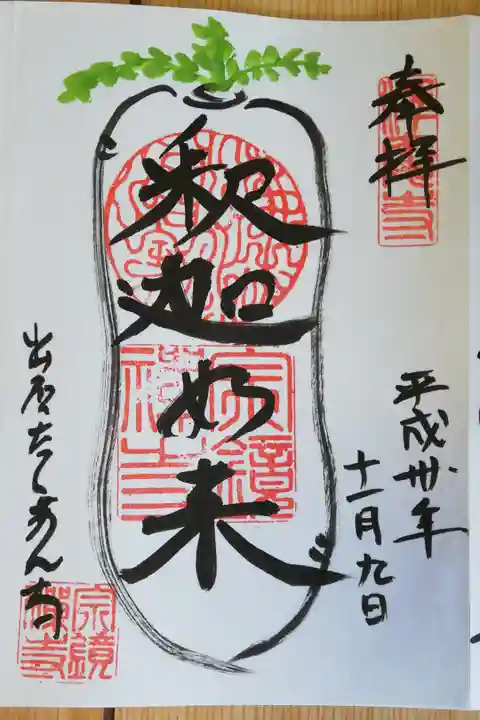 奉拝
平成卅年
十一月九日
釈迦如来
出石たくあん寺
宗鏡禅寺